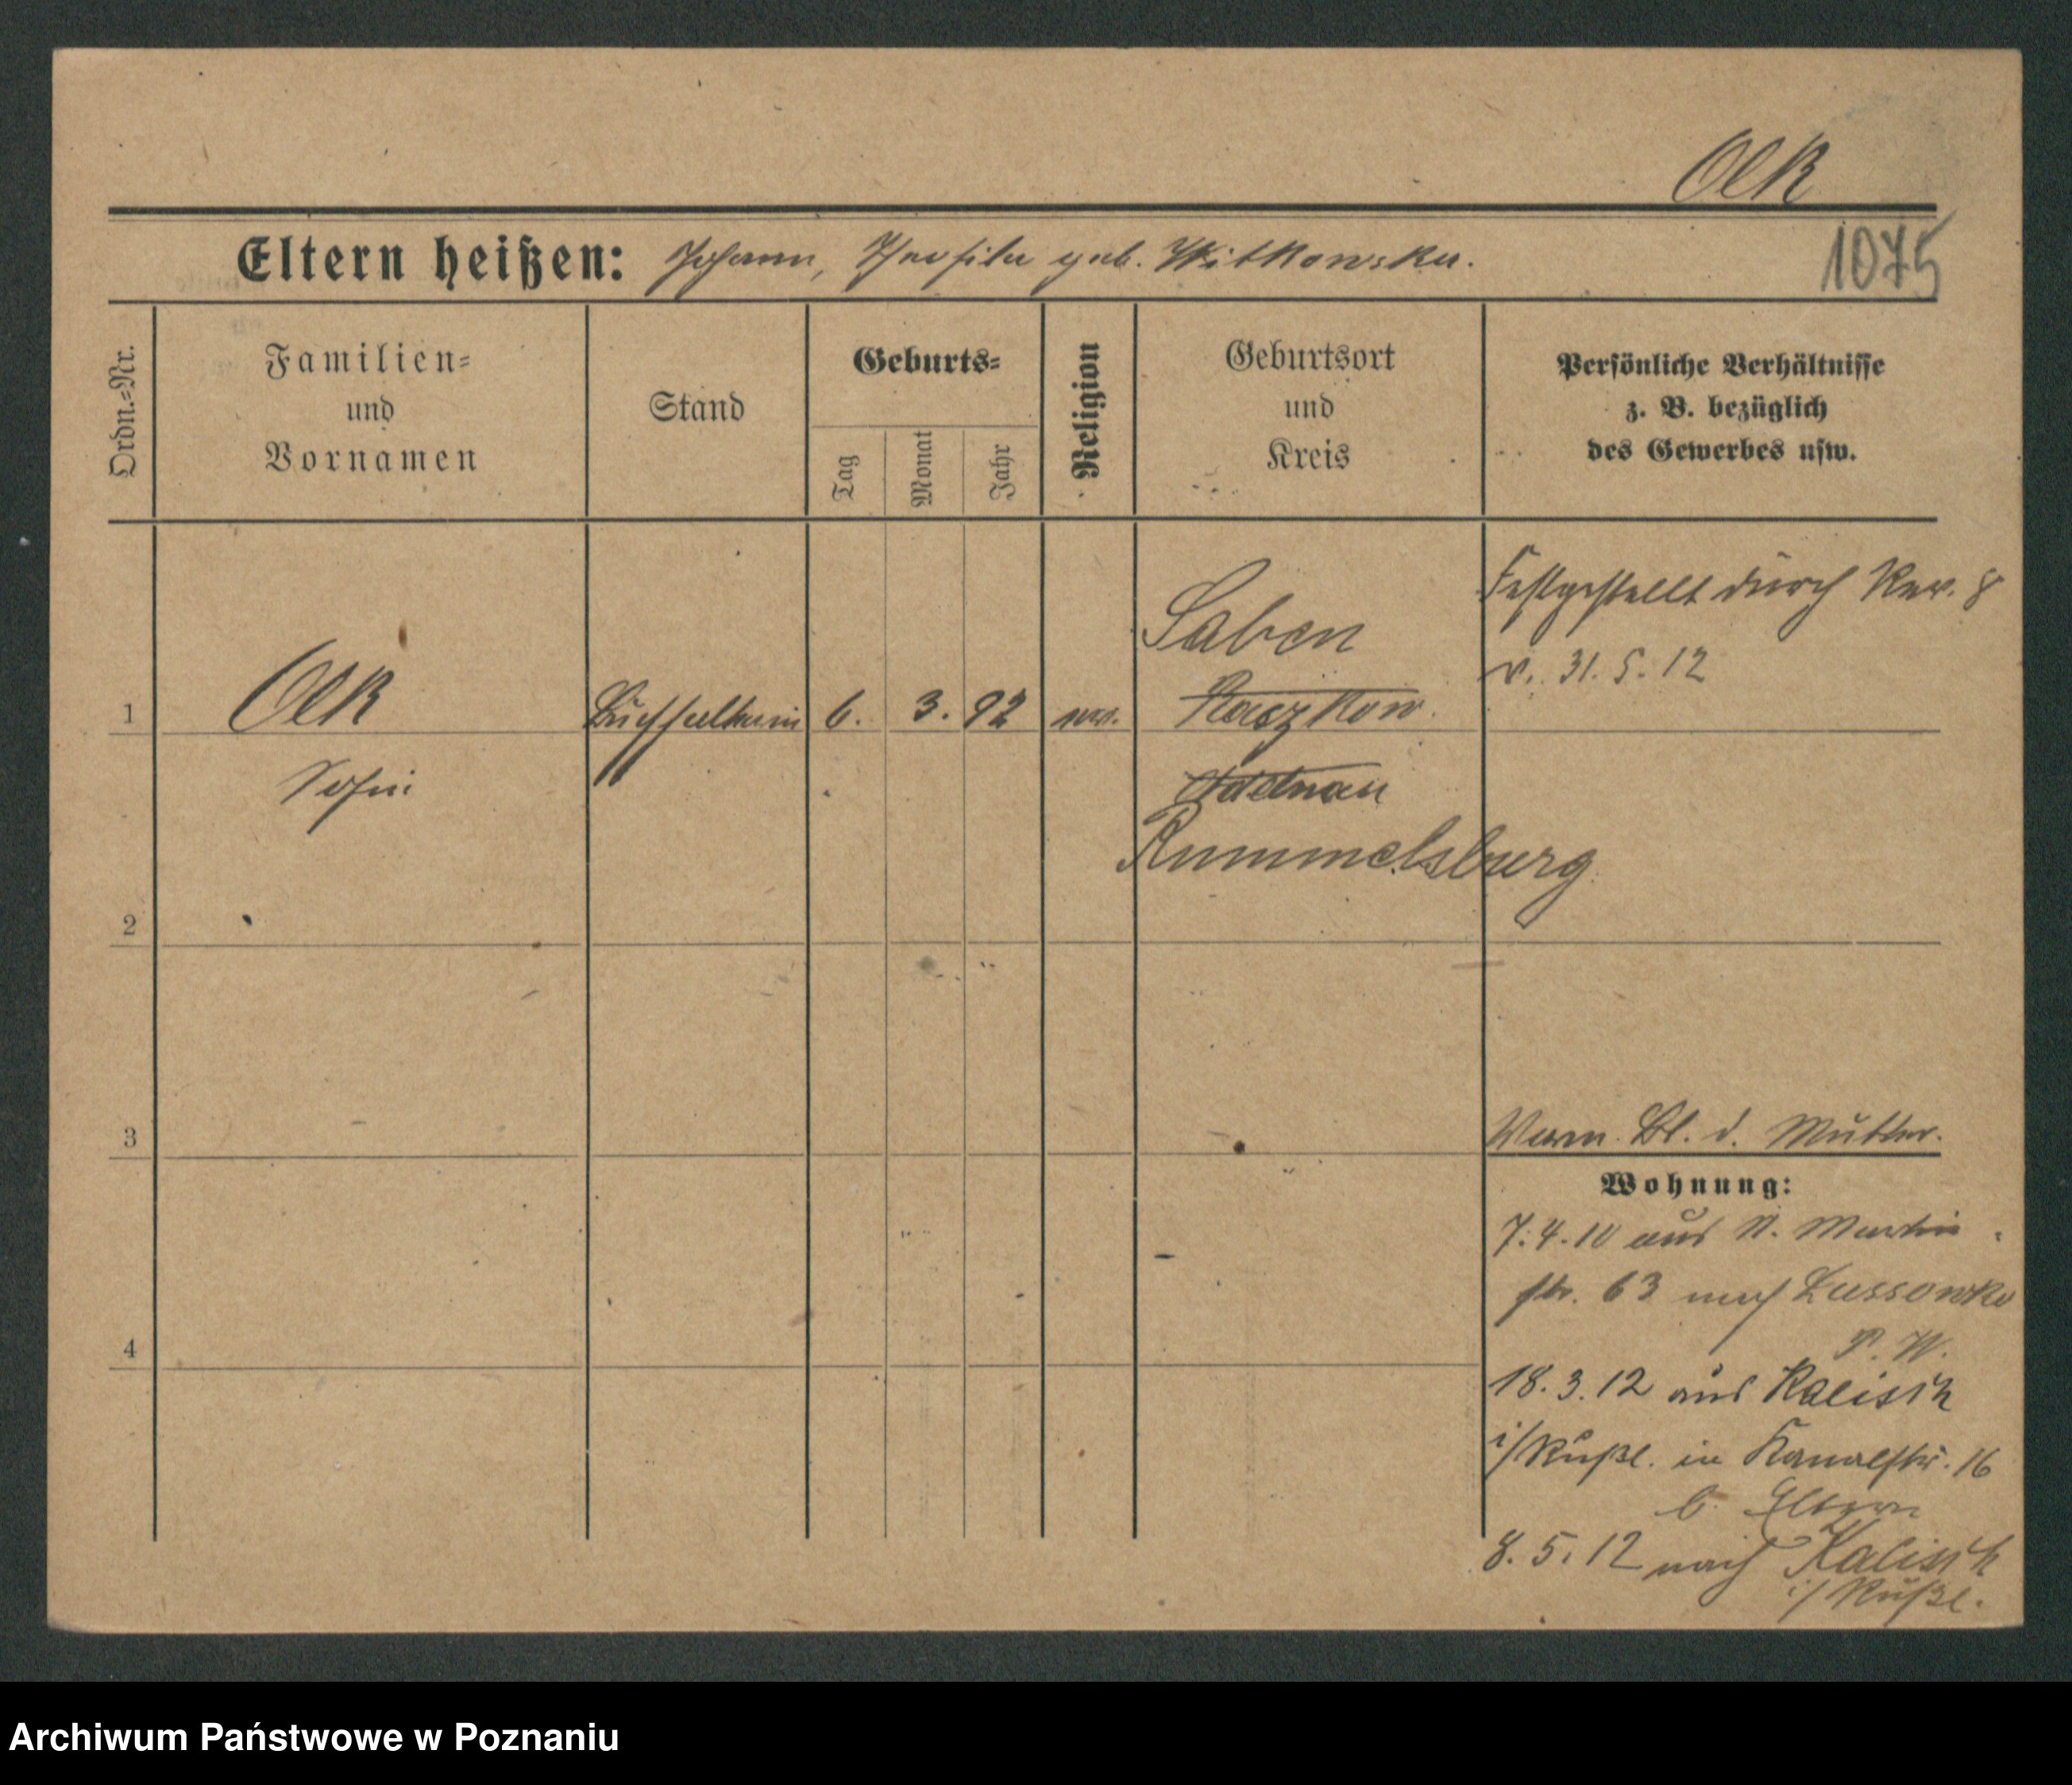 Olk
Eltern heißen: Johann, Theofila geb. Witkowska.
1075
Ordn.-Nr.
Familien-
und
Vornamen
Stand
Geburts-
Tag
Monat
Jahr
Religion
Geburtsort
und
Kreis
Persönliche Verhältnisse
z. B. bezüglich
des Gewerbes usw.
Festgestellt durch Rev. 8
v. 31.5.12
Saben
1 Olk Buchhalterin 6. 3. 92 Raszkow
Sofie
Adelnau
Rummelsburg
2
3
Verm. Bl. d. Mutter.
Wohnung:
7.4.10 aus St. Martin
str. 63 nach Lussowko
P. W.
4
18.3.12 aus Kalisch
i/Rußl. in Kanalstr. 16
b. Eltern
8.5.12 nach Kalisch
i/Rußl.
Archiwum Państwowe w Poznaniu